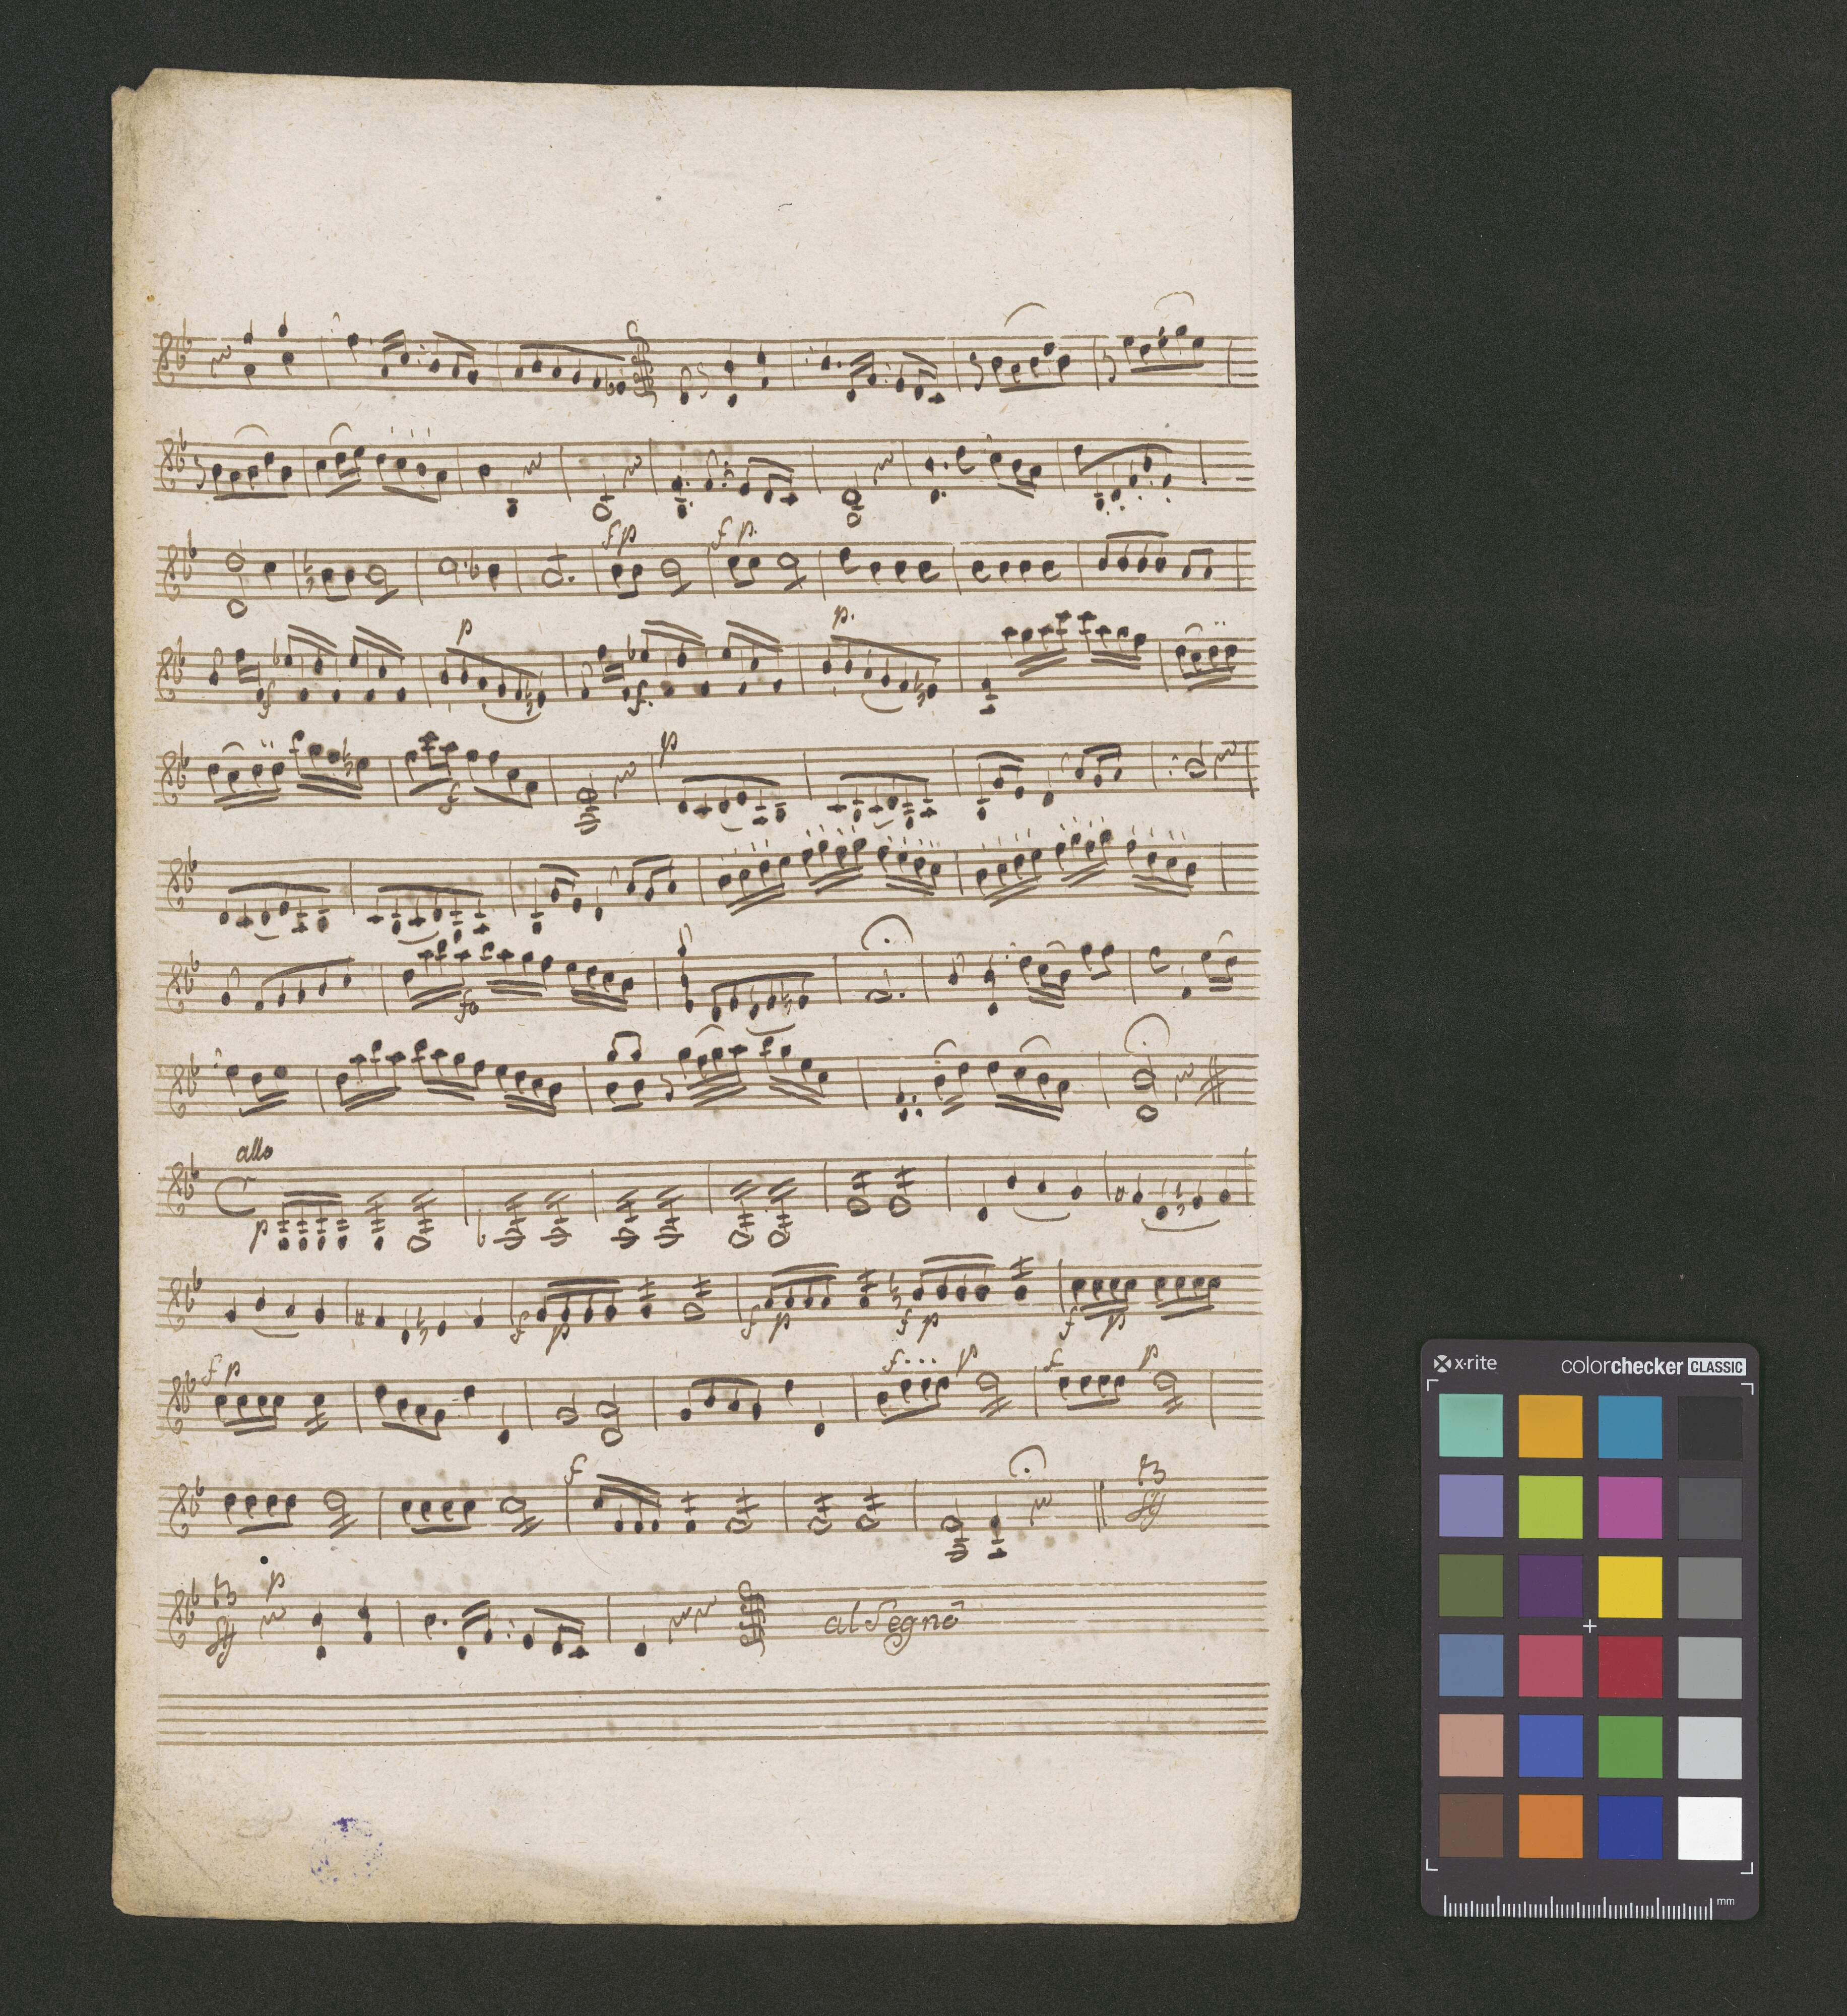 fp f p.
p p.
f f.
p
f
fo
allo
p
f p f p f p f p
f p f... p f p
f
p
al Segno
x·rite colorchecker CLASSIC
mm